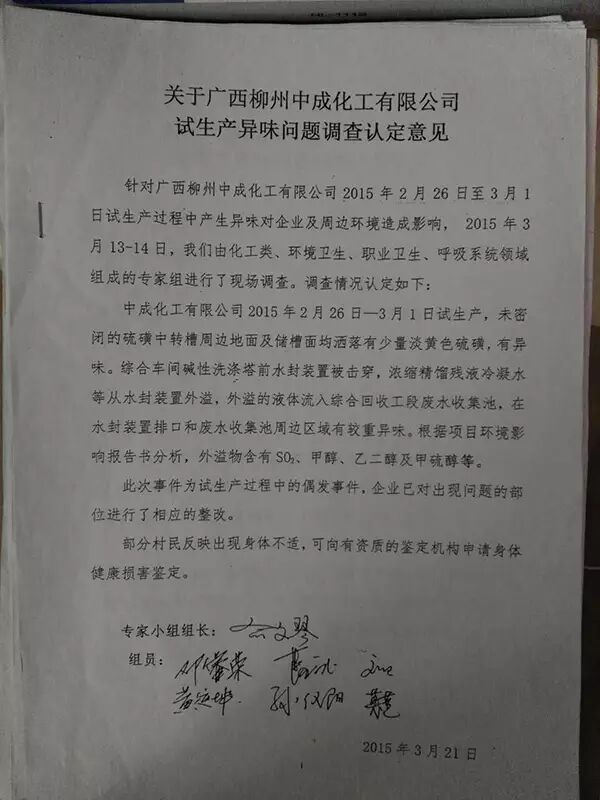 关于广西柳州中成化工有限公司
试生产异味问题调查认定意见
针对广西柳州中成化工有限公司 2015 年 2 月 26 日至 3 月 1
日试生产过程中产生异味对企业及周边环境造成影响， 2015 年 3
月 13-14 日，我们由化工类、环境卫生、职业卫生、呼吸系统领域
组成的专家组进行了现场调查。调查情况认定如下：
中成化工有限公司 2015 年 2 月 26 日—3 月 1 日试生产，未密
闭的硫磺中转槽周边地面及储槽面均洒落有少量淡黄色硫磺，有异
味。综合车间碱性洗涤塔前水封装置被击穿，浓缩精馏残液冷凝水
等从水封装置外溢，外溢的液体流入综合回收工段废水收集池，在
水封装置排口和废水收集池周边区域有较重异味。根据项目环境影
响报告书分析，外溢物含有 SO₂、甲醇、乙二醇及甲硫醇等。
此次事件为试生产过程中的偶发事件，企业已对出现问题的部
位进行了相应的整改。
部分村民反映出现身体不适，可向有资质的鉴定机构申请身体
健康损害鉴定。
专家小组组长：
组员：
2015 年 3 月 21 日
1